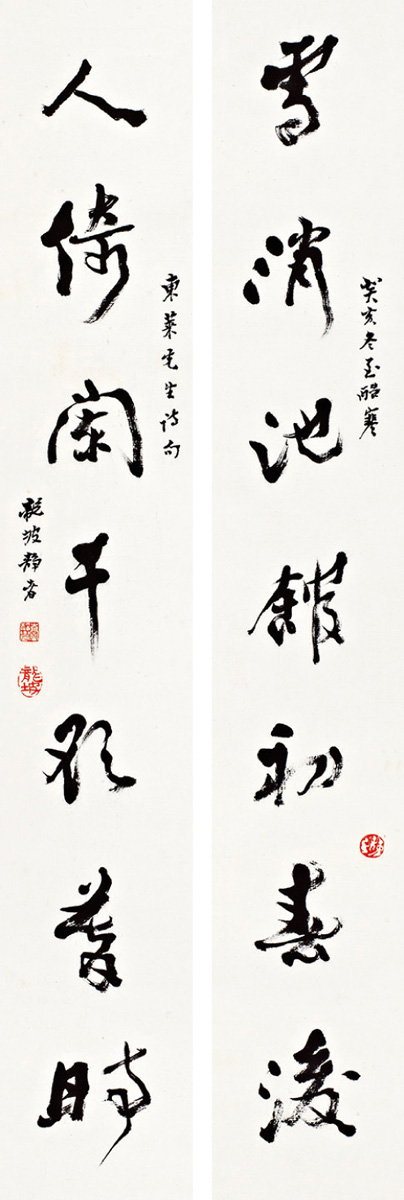 雪消池館初春後
人倚闌干欲暮時
癸亥冬至酷寒
東萊先生詩句
龍坡靜者
龍坡